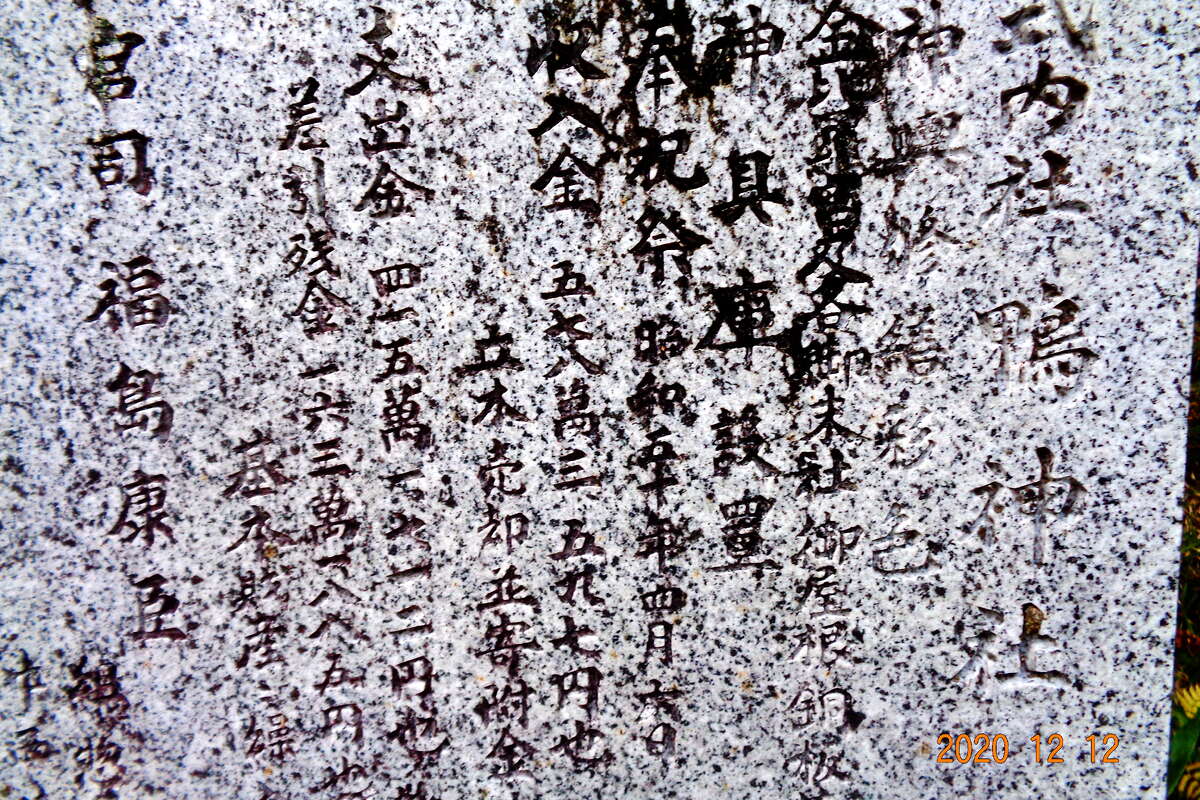 式内社 鴨神社
神輿修繕彩色
御末社 御屋根銅板
神具庫設置
奉祝祭 昭和五十年四月十六日
収入金 五六八萬三五九七円也
立木売却並寄附金
支出金 四一五萬一七一二円也
差引残金 一六三萬一八八五円也
基本財産ニ繰
宮司 福島康臣
2020 12 12